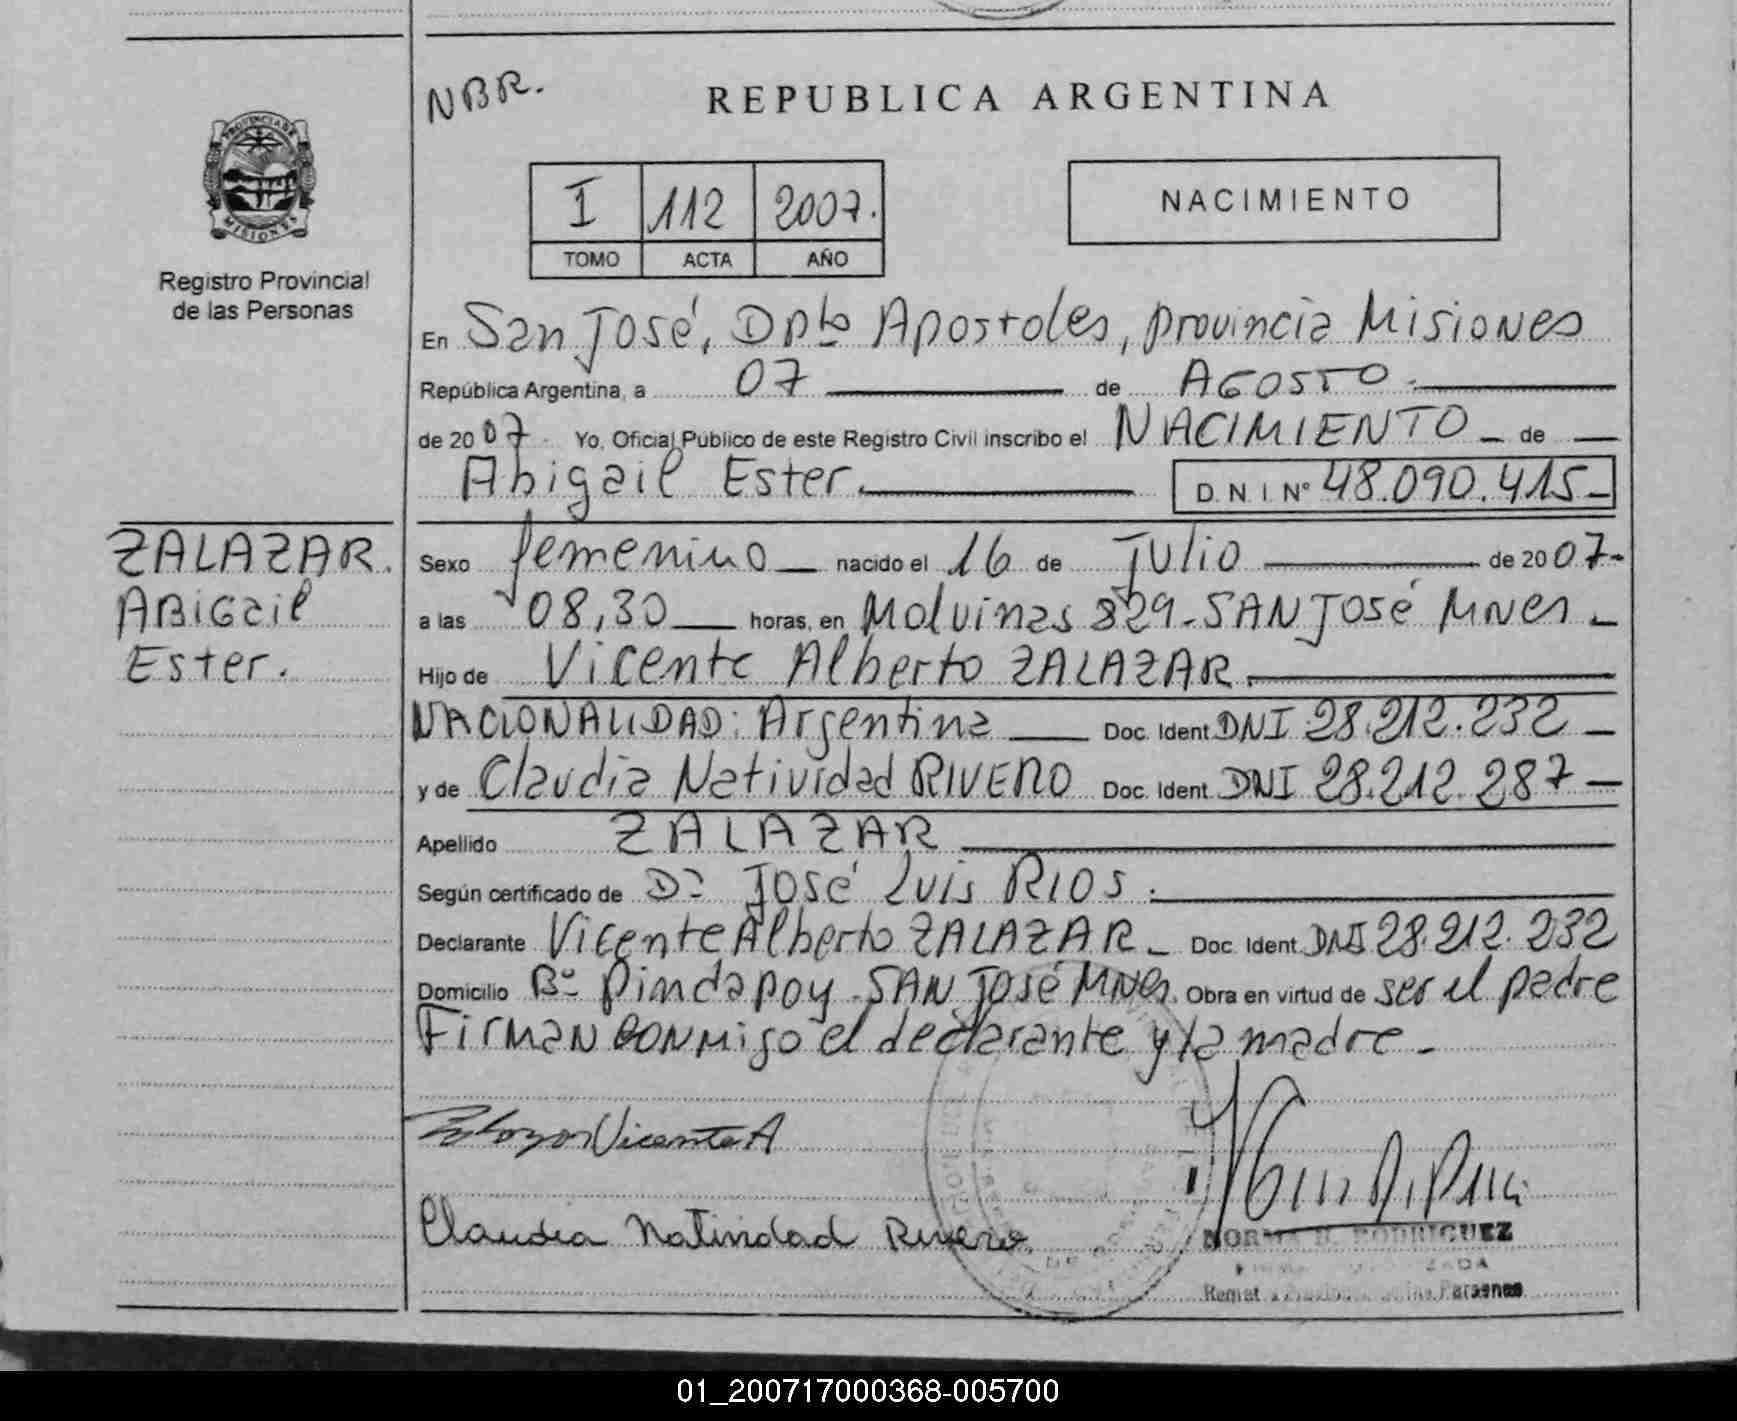 NBR.
REPUBLICA ARGENTINA
PROVINCIA DE
MISIONES
Registro Provincial
de las Personas
I 112 2007.
TOMO ACTA AÑO
NACIMIENTO
En San José, Dpto Apostoles, provincia Misiones
República Argentina, a 07 de AGOSTO.
de 2007. Yo, Oficial Público de este Registro Civil inscribo el NACIMIENTO de
Abigail Ester. D.N.I Nº 48.090.415
ZALAZAR.
ABIGail
Ester.
Sexo femenino nacido el 16 de Julio de 2007
a las 08,30 horas, en Malvinas 829-SAN José Mnes
Hijo de Vicente Alberto ZALAZAR.
NACIONALIDAD: Argentina Doc. Ident. DNI 28.212.232
y de Claudia Natividad RIVERO Doc. Ident. DNI 28.212.287
Apellido ZALAZAR
Según certificado de Dr José Luis RIOS.
Declarante Vicente Alberto ZALAZAR Doc. Ident. DNI 28.212.232
Domicilio Bº Pindapoy-SAN José Mnes. Obra en virtud de ser el padre
Firman conmigo el declarante y la madre.
Zalazar Vicente A
Claudia Natividad Rivero
NORMA B. RODRIGUEZ
Personas
01_200717000368-005700